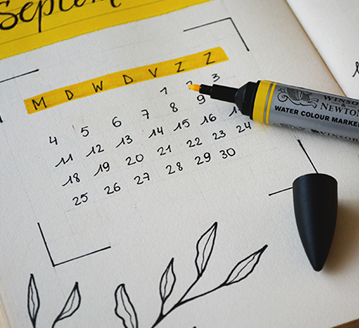 Septem
M D W D V Z Z
1 2 3
4 5 6 7 8 9
11 12 13 14 15 16 17
18 19 20 21 22 23 24
25 26 27 28 29 30
WINSOR
NEWTON
WATER COLOUR MARKER